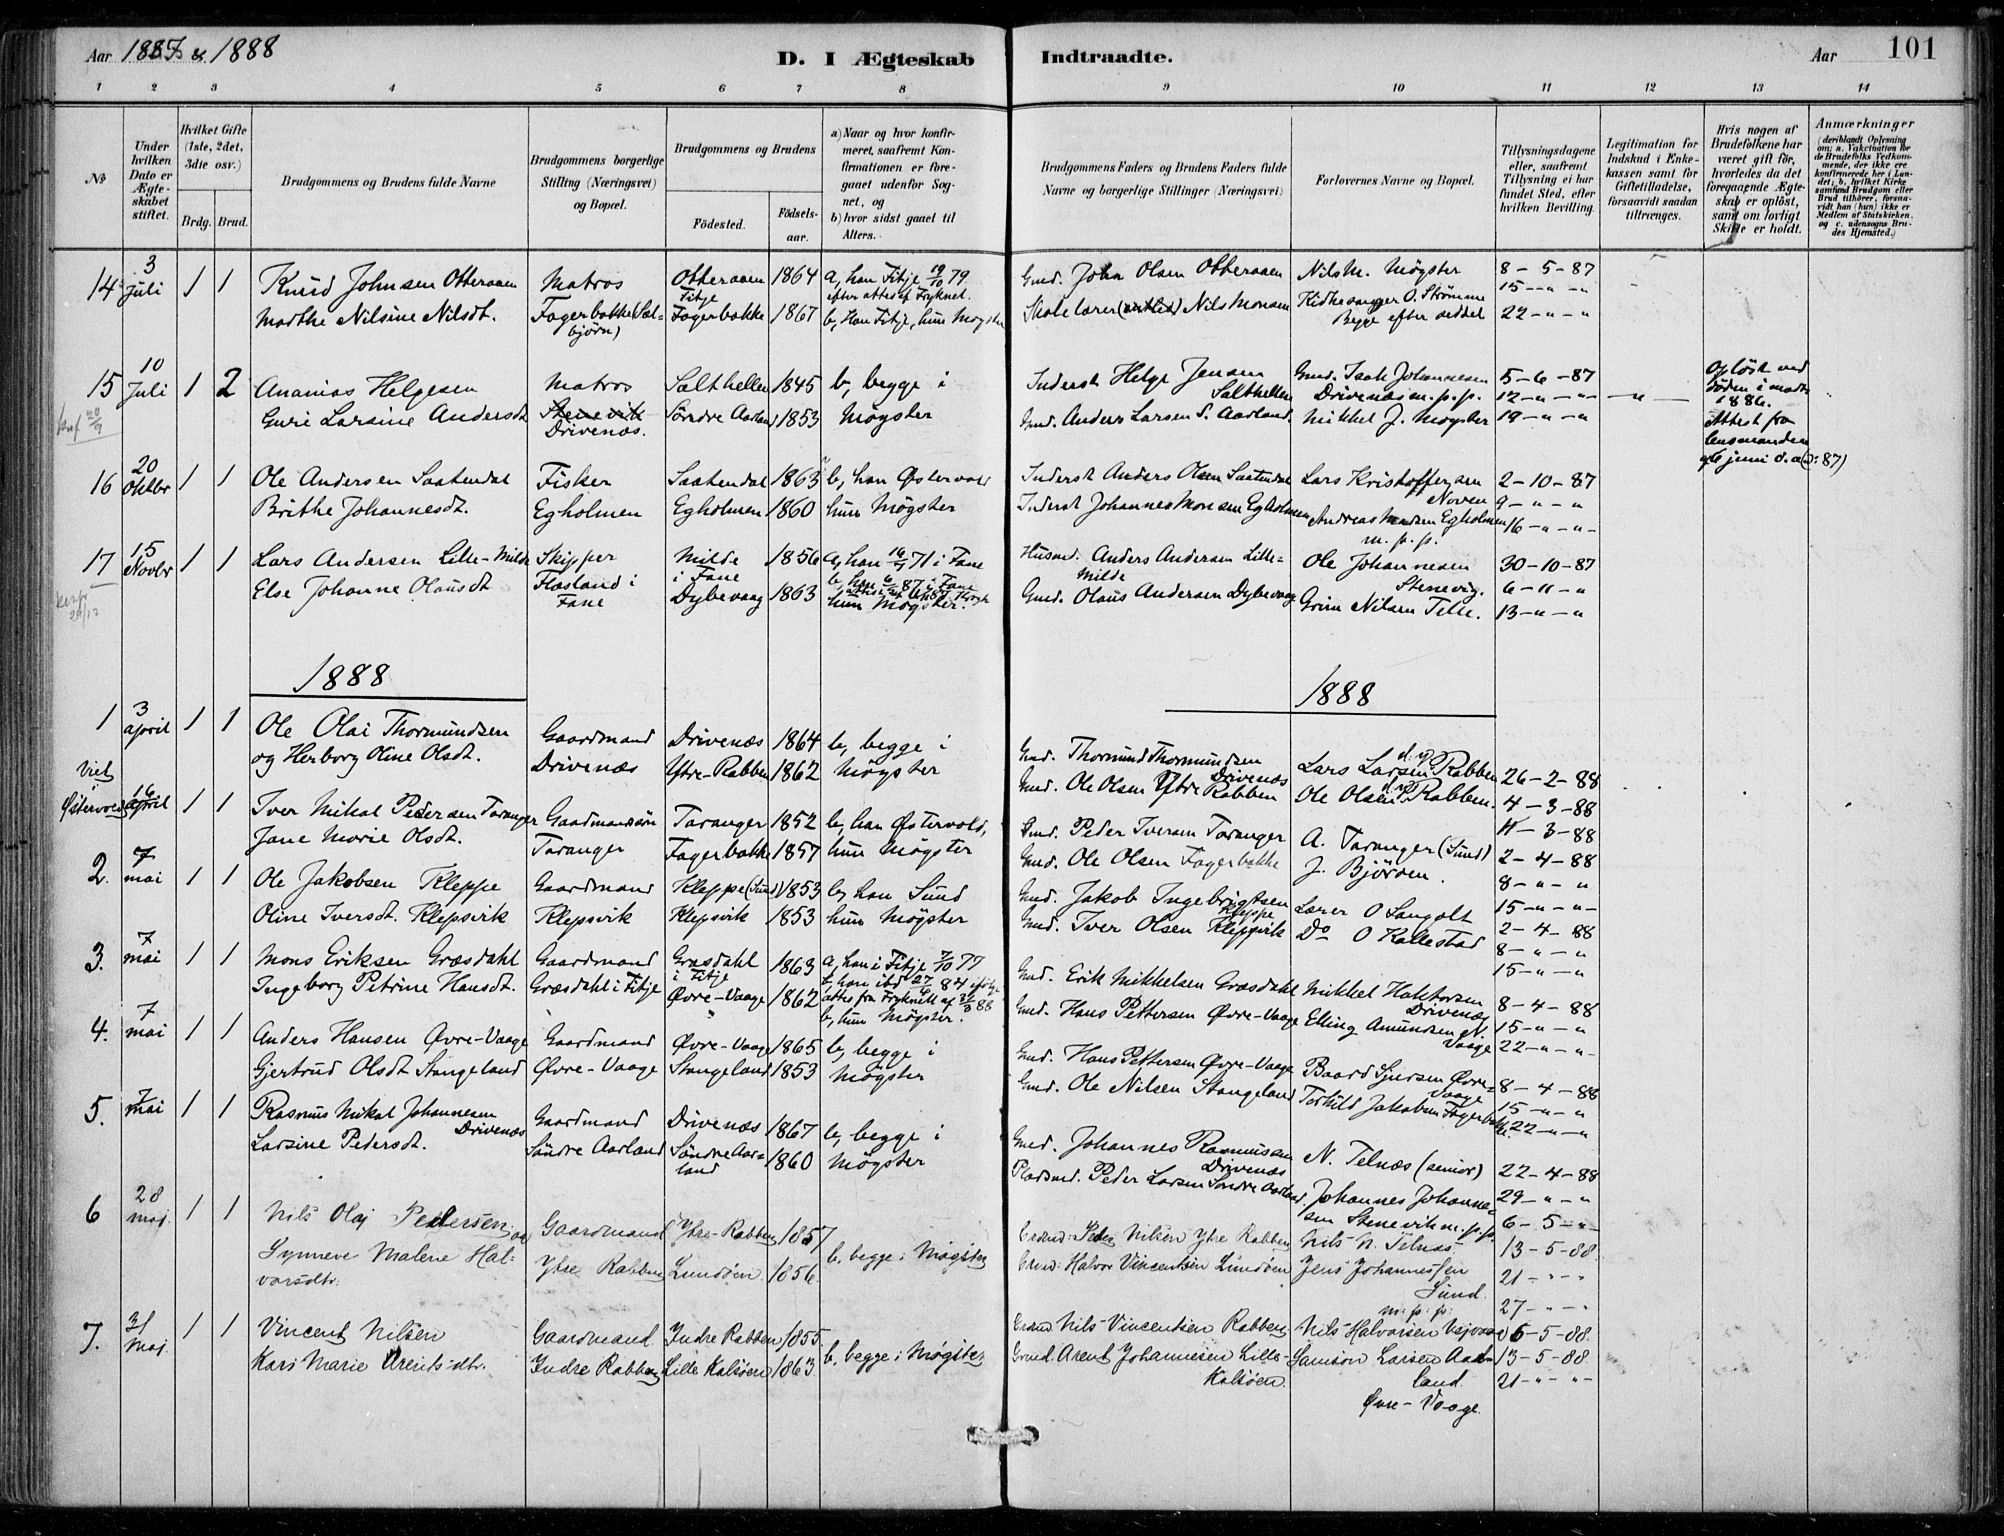 Aar 1887 & 1888
D. I Ægteskab Indtraadte.
Aar 101
1 2 3 4 5 6 7 8 9 10 11 12 13 14
No
Under hvilken Dato er Ægteskabet stiftet.
Hvilket Gifte (1ste, 2det, 3die osv.)
Brdg. Brud.
Brudgommens og Brudens fulde Navne
Brudgommens borgerlige Stilling (Næringsvei) og Bopæl.
Brudgommens og Brudens
Fødested.
Fødselsaar.
a) Naar og hvor konfirmeret, saafremt Konfirmationen er foregaaet udenfor Sognet, og
b) hvor sidst gaaet til Alters.
Brudgommens Faders og Brudens Faders fulde Navne og borgerlige Stillinger (Næringsvei)
Forlovernes Navne og Bopæl.
Tillysningsdagene eller, saafremt Tillysning ei har fundet Sted, efter hvilken Bevilling.
Legitimation for Indskud i Enkekassen samt for Giftetilladelse, forsaavidt saadan tiltrænges.
Hvis nogen af Brudefolkene har været gift før, hvorledes da det foregaaende Ægteskab er opløst, samt om lovligt Skifte er holdt.
Anmærkninger
(deriblandt Oplysning om: a. Vakcination for de Brudefolks Vedkommende, der ikke ere konfirmerede her i Landet; b. hvilket Kirkesamfund Brudgom eller Brud tilhører, forsaavidt han (hun) ikke er Medlem af Statskirken, og c. udensogns Brudes Hjemsted.)
14 3 Juli 1 1 Knud Johnsen Otteraaen Matros Otteraaen Fitje 1864 a, han Fitje 19/10 79 Gmd. John Olsen Otteraaen Nils M. Møgster 8-5-87
efter attest af Fryknet. 15-"-"
Marthe Nilsine Nilsdt. Fagerbakke (Sælbjørn) Fagerbakke 1867 b, Han Fitje, hun Møgster Skolelærer Nils Monsen Kirkesanger O. Strømme 22-"-"
Begge efter seddel
15 10 Juli 1 2 Ananias Helgesen Matros Salthellen 1845 b, begge i Inderst Helge Jensen Salthellen Gmd. Isak Johannesen Drivenæs m.p.p. 5-6-87
12-"-" -"-
Guri Larsine Andersdt. Stenevik Drivenæs. Søndre Aarland 1853 Møgster Gmd. Anders Larsen S. Aarland. Mikkel J. Møgster 19-"-"
Opløst ved
døden i marts
1886.
Attest fra
lensmanden
af 6 juni d.a (: 87)
16 20 Oktbr 1 1 Ole Andersen Saatendal Fisker Saatendal 1863 b, han Østervold Inderst Anders Olsen Saatendal Lars Kristoffersen Noven 2-10-87
9-"-"
Brithe Johannesdt. Egholmen Egholmen 1860 hun Møgster Inderst Johannes Monsen Egholmen Andreas Madsen Egholmen m.p.p. 16-"-"
17 15 Novbr 1 1 Lars Andersen Lille-Milde Skipper Milde i Fane 1856 a, han 16/4 71 i Fane Husmd. Anders Andersen Lille-Milde Ole Johannesen Stenevig. 30-10-87
b, han 6/ 87 i Fane 6-11-"
Else Johanne Olausdt Flasland i Fane Dybevaag 1863 hun Møgster. Gmd. Olaus Andersen Dybevaag Grim Nilsen Telle. 13-"-"
1888
1888
1 3 april 1 1 Ole Olai Thormundsen Gaardmand Drivenæs 1864 b, begge i Gmd. Thormund Thormundsen Drivenæs Lars Larsen d.y. Rabben 26-2-88
og Herborg Oline Olsdt. Drivenæs Ytre-Rabben 1862 Møgster Gmd. Ole Olsen Ytre Rabben Ole Olsen d.y. Rabben. 4-3-88
11-3-88
Viet Østervold 16 april 1 1 Iver Mikal Pedersen Taranger Gaardmandssøn Taranger 1852 b, han Østervold, Gmd. Peder Iversen Taranger A. Taranger (Sund) 2-4-88
Jane Marie Olsdt. Taranger Fagerbakke 1857 hun Møgster Gmd. Ole Olsen Fagerbakke J. Bjørøen. 8-"-"
15-"-"
2. 7 mai 1 1 Ole Jakobsen Kleppe Gaardmand Kleppe (Sund) 1853 b, han Sund Gmd. Jakob Ingebrigtsen Kleppe Lærer O Langolt 2-4-88
Oline Iversdt. Klepsvik Klepsvik Klepsvik 1853 hun Møgster Gmd. Iver Olsen Kleppsvik Do O Kallestad 8-"-"
15-"-"
3. 7 mai 1 1 Mons Eriksen Græsdahl Gaardmand Græsdahl i Fitje 1863 a, han i Fitje 7/10 77 Gmd. Erik Mikkelsen Græsdahl Mikkel Haktorsen Drivenæs 8-4-88
b, han ibd 27/ 84 ifølge
attes fra Fryknett af 31/3 88 15-"-"
Ingeborg Petrine Hansdt. Græsdahl i Fitje Øvre-Vaage 1862 b, hun Møgster. Gmd. Hans Pettersen Øvre-Vaage Elling Amundsen N Vaage 22-"-"
4. 7 mai 1 1 Anders Hansen Øvre-Vaage Gaardmand Øvre-Vaage 1865 b, begge i Gmd. Hans Pettersen Øvre-Vaage Baard Sjursen Øvre-Vaage 8-4-88
15-"-"
Gjertrud Olsdt Stangeland Øvre-Vaage Stangeland 1853 Møgster Gmd. Ole Nilsen Stangeland Torkild Jakobsen Fagerbakke. 22-"-"
5. 7 mai 1 1 Rasmus Mikal Johannesen Drivenæs Gaardmand Drivenæs 1867 b, begge i Gmd. Johannes Rasmussen Drivenæs N. Telnæs (senior) 22-4-88
29-"-"
Larsine Pedersdt. Søndre Aarland Søndre Aarland 1860 Møgster Pladsmd. Peder Larsen Søndre Aarland Johannes Johannesen Stenevik m.p.p. 6-5-"
6 28 maj. 1 1 Nils Olaj Pedersen og Gaardmand Ytre-Rabben 1857 b. begge i Møgster Grmd: Peder Nilsen Ytre Rabben Nils N. Telnæs 13-5-88.
Synneve Malene Halvorsdtr. Ytre Rabben Lundøen. 1856. Grmd: Halvor Vincentsen Lundøen Jens Johannessen Lund. m:p:p: 21-"-"
27-"-"
7. 31 Maj. 1 1 Vincent Nilsen Gaardmand. Indre Rabben 1855. b, begge i Møgster Grmd Nils Vincentsen Rabben Nils Halvorsen 6-5-88.
Kari Marie Arents-dtr. Indre Rabben Lille Kalsøen 1863. Grmd. Arent Johannesen Lille-Kalsøen. Samson Larsen Aarland 13-5-88.
21-"-"
Øvre-Vaage.